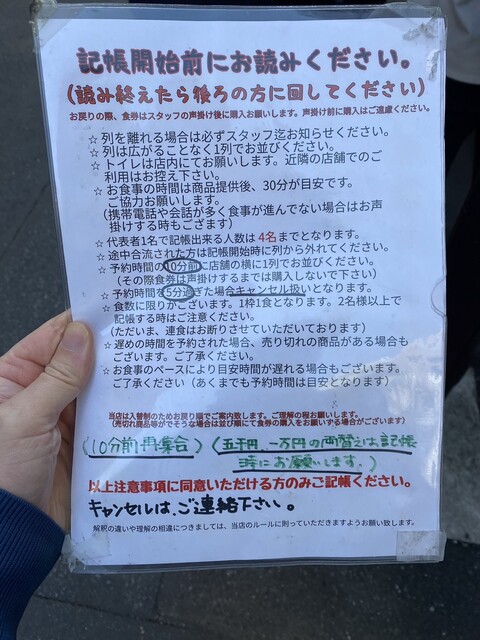 記帳開始前にお読みください。
(読み終えたら後ろの方に回してください)
お戻りの際、食券はスタッフの声掛け後に購入お願いします。声掛け前に購入はご遠慮ください。
☆列を離れる場合は必ずスタッフ迄お知らせください。
☆列は広がることなく1列でお並びください。
☆トイレは店内にてお願いします。近隣の店舗でのご
利用はお控え下さい。
☆お食事の時間は商品提供後、30分が目安です。
ご協力お願いします。
(携帯電話や会話が多く食事が進んでない場合はお声
掛けする時もござます)
☆代表者1名で記帳出来る人数は4名までとなります。
☆途中合流された方は記帳開始時に列から外れてください。
☆予約時間の10分前に店舗の横に1列でお並びください。
(その際食券は声掛けするまでは購入しないで下さい)
☆予約時間を5分過ぎた場合キャンセル扱いとなります。
☆食数に限りがございます。1杯1食となります。2名様以上で
記帳する時はご注意ください。
(ただいま、連食はお断りさせていただいております)
☆遅めの時間を予約された場合、売り切れの商品がある場合も
ございます。ご了承ください。
☆お食事のペースにより目安時間が遅れる場合もございます。
ご了承ください(あくまでも予約時間は目安となります)
当店は入替制のためお戻り順でご案内致します。ご理解の程お願いします。
(売切れ商品等がでそうな場合は並び順にて食券の購入をお願いする場合がございます)
(10分前再集合)(五千円、一万円の両替えは記帳
時にお願いします。)
以上注意事項に同意いただける方のみご記帳ください。
キャンセルは、ご連絡下さい。
解釈の違いや理解の相違につきましては、当店のルールに則っていただきますようお願い致します。